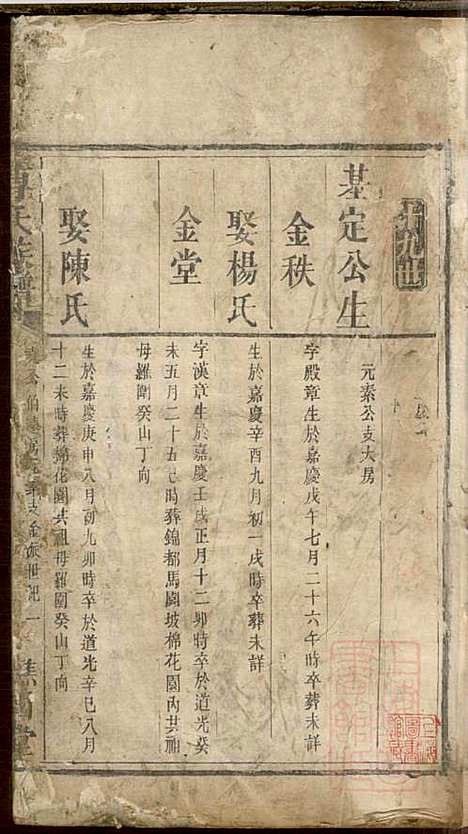 十九世
元素公支大房
基定公生
金秩
字殿章生於嘉慶戊午七月二十六午時卒葬未詳
娶楊氏
生於嘉慶辛酉九月初一戌時卒葬未詳
金堂
字漢章生於嘉慶壬戌正月十二卯時卒於道光癸
未五月二十五巳時葬錦都馬園坡棉花園內共祖
母羅剛癸山丁向
娶陳氏
生於嘉慶庚申八月初九卯時卒於道光辛巳八月
十二未時葬棉花園共祖母羅園癸山丁向
氏族譜
公 派世紀一
堂